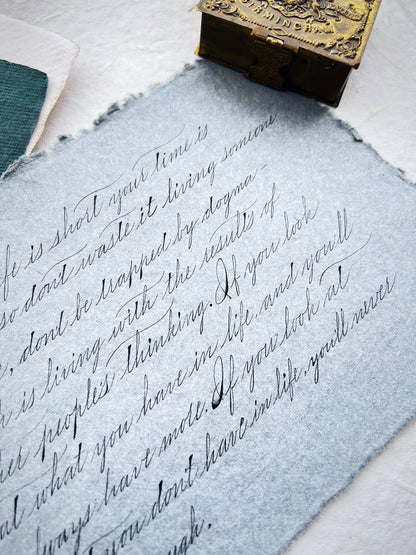 BIRMINGHAM
fe is short your time is
so don't waste it living someone
, dont be trapped by dogma -
h is living with the results of
her people's thinking. If you look
at what you have in life, and you'll
lways have more. If you look at
you don't have in life, you'll never
ugh.